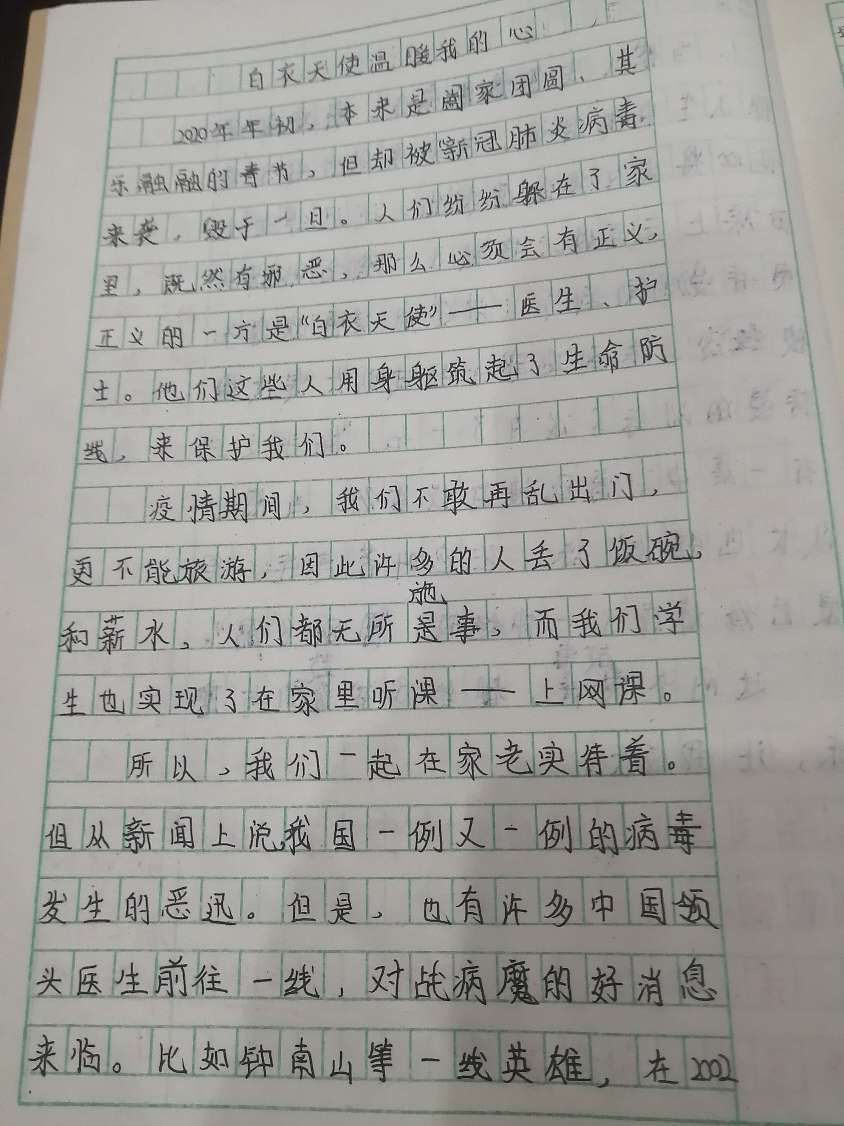 白衣天使温暖我的心
2020年年初，本来是阖家团圆、其
乐融融的春节，但却被新冠肺炎病毒
来袭，毁于一旦。人们纷纷躲在了家
里，既然有邪恶，那么必须会有正义，
正义的一方是“白衣天使”——医生、护
士。他们这些人用身躯筑起了生命防
线，来保护我们。
疫情期间，我们不敢再乱出门，
更不能旅游，因此许多的人丢了饭碗，
施
和薪水，人们都无所是事，而我们学
生也实现了在家里听课——上网课。
所以，我们一起在家老实待着。
但从新闻上说我国一例又一例的病毒
发生的恶迅。但是，也有许多中国领
头医生前往一线，对战病魔的好消息
来临。比如钟南山等一线英雄，在2002